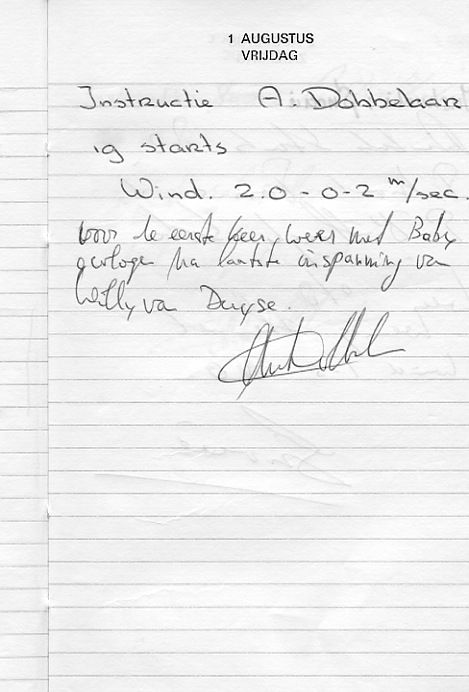 1 AUGUSTUS
VRIJDAG
Instructie A. Dobbelaar
19 starts
Wind. 2.0 - 0-2 m/sec.
Voor de eerste keer, weer met Baby
gevlogen na laatste inspanning van
Willy van Duyse.